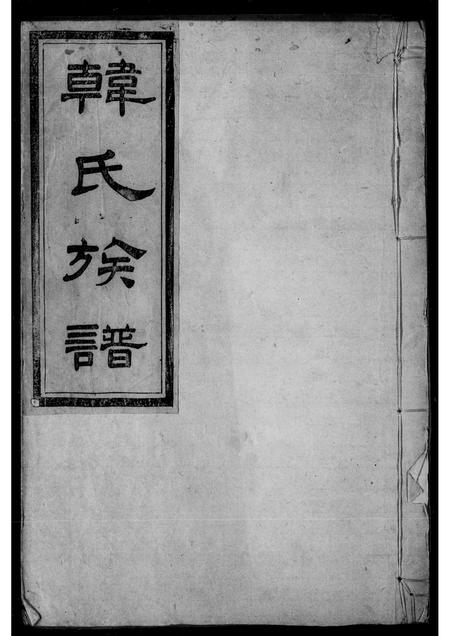 韓氏族譜